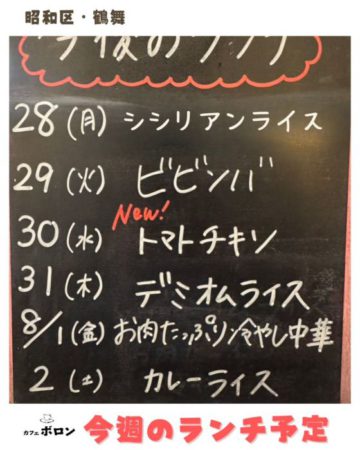 昭和区・鶴舞
今後のランチ
28(月) シシリアンライス
29(火) ビビンバ
New!
30(水) トマトチキン
31(木) デミオムライス
8/1(金) お肉たっぷり冷やし中華
2(土) カレーライス
カフェ ボロン
今週のランチ予定